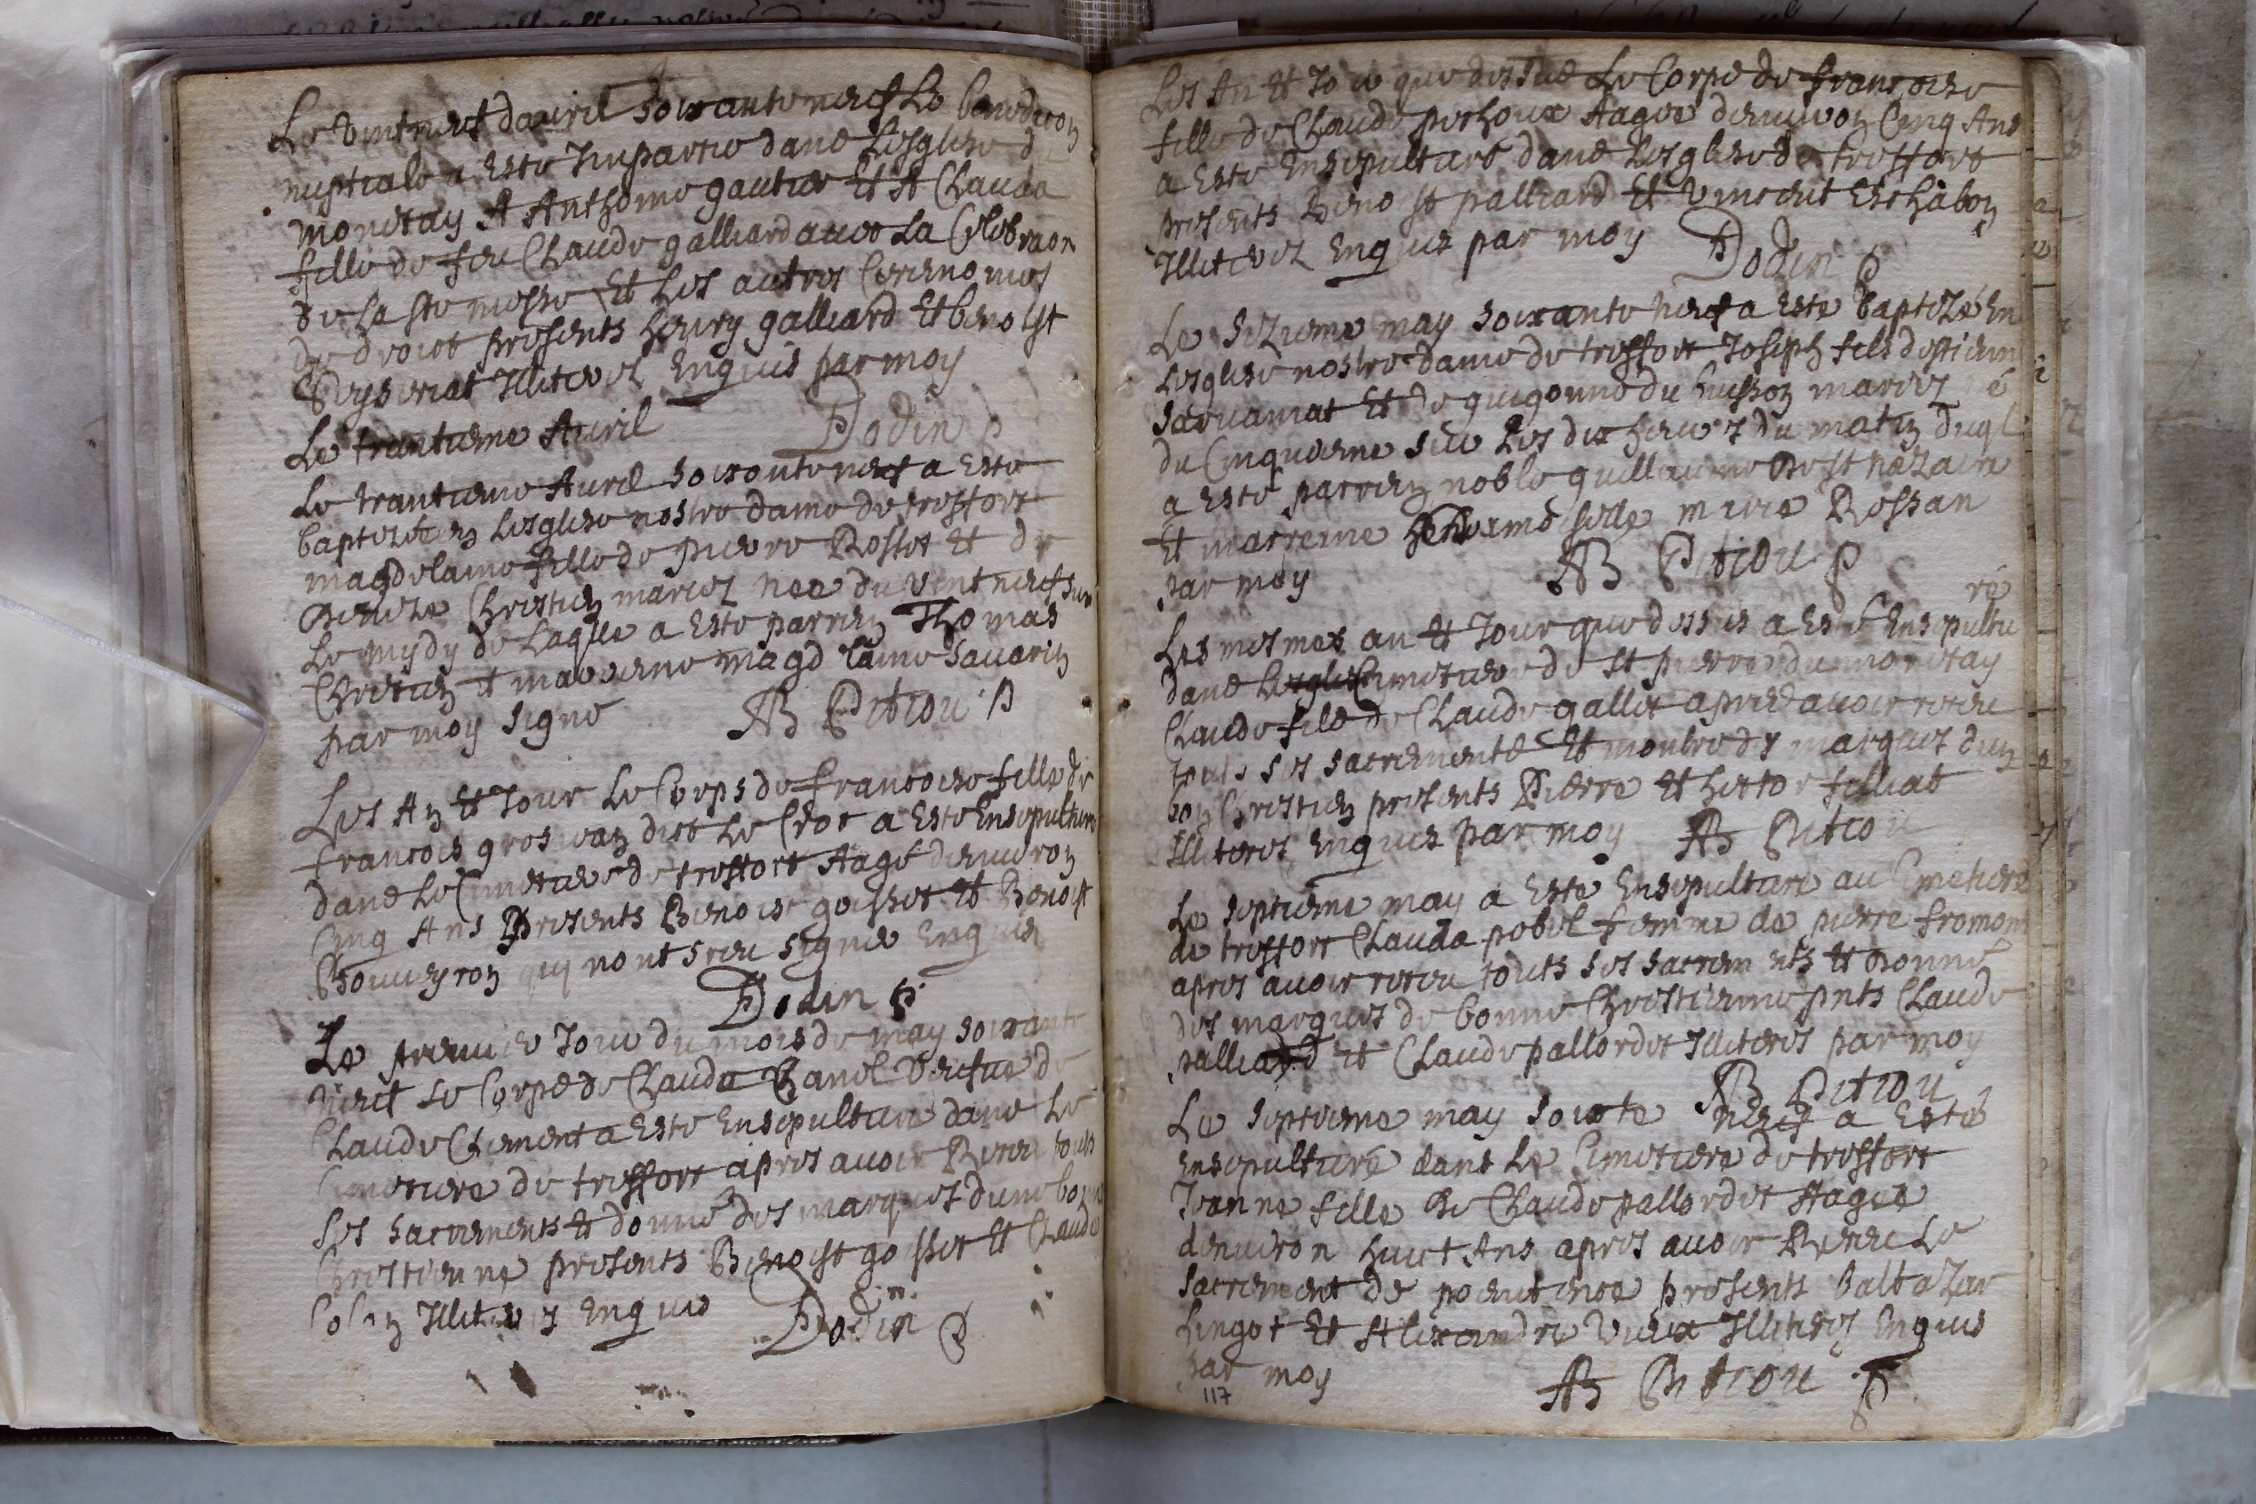 Le vintneuf davril soixante neuf La benediction
nuptiale a Esté Impartie dans Lesglise de
monetay A Anthoine gautier Et A Clauda
fille de feu Claude galliard avec La Celebraon
de La Ste messe Et Les autres Ceremonies
de droict presents henry galliard Et benoist
Illiterez Enquis par moy
Dodin p
Le trantieme Avril
Le trantieme Avril soixante neuf a Este
baptizée en Lesglise nostre dame de treffort
magdelaine fille de pierre Rosset Et de
Christin mariez née du vint neuf sur
Le mydy de Laqlle a Esté parrein Thomas
Christin et marrene magdelaine Savarin
par moy signé AB Pitiou p
Les An Et Jour Le Corps de francoise fille de
francois grosjean dict Le Crot a Esté Ensepulturé
dans Le Cimetiere de treffort Aagé denviron
Cinq Ans Presents Benoist goisset Et Benoist
qui nont sceu signer Enquis
Dodin p
Le premier Jour du mois de may soixante
neuf Le Corps de Clauda Vefve de
Claude Clement a Esté Ensepulturé dans Le
Cimetiere de treffort apres avoir Receu touts
Ses sacrements Et donné des marques dune bonne
Chrestienne presents Benoist goisset Et Claude
Illiterez Enquis Dodin p
Les An Et Jour que dessus Le Corps de francoise
fille de Claude perhoux Aagée denviron Cinq Ans
a Esté Ensepulturé dans Lesglise de treffort
presents palliard Et Vincent Eschabon
Illiterez Enquis par moy Dodin p
Le sizieme may soixante neuf a Esté baptizé En
Lesglise nostre dame de treffort Joseph fils destienne
Et de guigonne du huisson mariez né
du Cinquieme sur Les dix heures du matin duql
a Esté parrein noble guillaume de st nazaire
Et marreine marie Rossan
par moy AB Pitiou p
ré
Les mesmes an Et Jour que dessus a Esté Ensepultu
dans Cimetiere de st pierre du monetay
Claude fils de Claude gallet apres avoir receu
touts ses sacrements Et monbre de marques dun
bon Chrestien presents Pierre Et hector filliat
Illiterez Enquis par moy AB Pitiou
Le septieme may a Esté Ensepulturé au Cimetiere
de treffort Clauda pobel femme de pierre fromont
apres avoir receu touts ses sacremnts Et donné
des marques de bonne Chrestienne pnts Claude
palliard et Claude pallordet Illiteres par moy
AB Pitiou
Le septieme may soixte neuf a Esté
Ensepulturé dans Le Cimetiere de treffort
Jeanne fille de Claude pallordet Aagée
denviron huict Ans apres avoir Receu Le
sacrement de penitence presents baltazar
Lingot Et Alexandre Vieux Illiterez Enquis
par moy AB Pitiou p
117